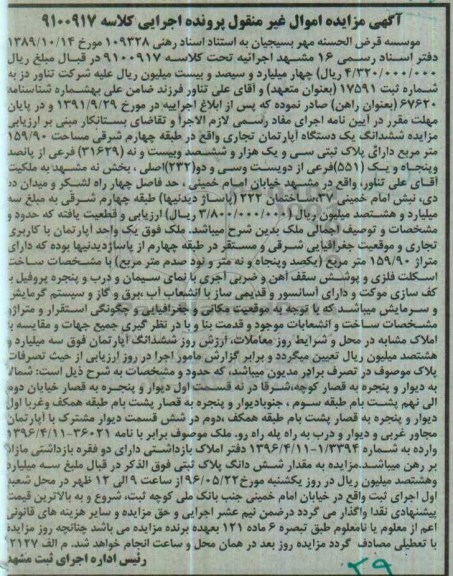 آگهی مزایده اموال غیر منقول پرونده اجرایی کلاسه ۹۱۰۰۹۱۷
موسسه قرض الحسنه مهر بسیجیان به استناد اسناد رهنی ۱۰۹۳۲۸ مورخ ۱۳۸۹/۱۰/۱۴
دفتر اسناد رسمی ۱۶ مشهد اجرائیه تحت کلاسه ۹۱۰۰۹۱۷ در قبال مبلغ ریال
۴/۳۲۰/۰۰۰/۰۰۰ ریال) چهار میلیارد و سیصد و بیست میلیون ریال علیه شرکت تناور دژ به
شماره ثبت ۱۷۵۹۱ (بعنوان متعهد) و آقای علی تناور فرزند ضامن علی بهشماره شناسنامه
۶۷۶۲۰ (بعنوان راهن) صادر نموده که پس از ابلاغ اجراییه در مورخ ۱۳۹۱/۹/۲۹ و در پایان
مهلت مقرر در آیین نامه اجرای مفاد رسمی لازم الاجرا و تقاضای بستانکار مبنی بر ارزیابی
مزایده ششدانگ یک دستگاه آپارتمان تجاری واقع در طبقه چهارم شرقی مساحت ۱۵۹/۹۰
متر مربع دارای پلاک ثبتی سی و یک هزار و ششصد وبیست و نه (۳۱۶۲۹) فرعی از پانصد
وپنجاه و یک (۵۵۱)فرعی از دویست وسی و دو(۲۳۲)اصلی ، بخش نه مشهد؛به ملکیت
آقای علی تناور، واقع در مشهد خیابان امام خمینی ، حد فاصل چهار راه لشکر و میدان ده
دی، نبش امام خمینی ۳۷،ساختمان ۲۲۲ (پاساژ دیدنیها) طبقه چهارم شرقی به مبلغ سه
میلیارد و هشتصد میلیون ریال(۳/۸۰۰/۰۰۰/۰۰۰ ریال) ارزیابی و قطعیت یافته که حدود و
مشخصات و توصیف اجمالی ملک بدین شرح میباشد. ملک فوق یک واحد آپارتمان با کاربری
تجاری و موقعیت جغرافیایی شرقی و مستقر در طبقه چهارم از پاساژدیدنیها بوده که دارای
متراژ ۱۵۹/۹۰ متر مربع (یکصد وپنجاه و نه متر و نود صدم متر مربع) با مشخصات ساخت
اسکلت فلزی و پوشش سقف آهن و ضربی آجری با نمای سیمان و درب و پنجره پروفیل با
کف سازی موکت و دارای آسانسور و قدیمی ساز با انشعاب آب ،برق و گاز و سیستم گرمایش
و سرمایش میباشد که با توجه به موقعیت مکانی و جغرافیایی و چگونگی استقرار و متراژو
مشخصات ساخت و انشعابات موجود و قدمت بنا و با در نظر گیری جمیع جهات و مقایسه با
املاک مشابه در محل و شرایط روز معاملات، ارزش روز ششدانگ آپارتمان فوق سه میلیارد و
هشتصد میلیون ریال تعیین میگردد و برابر گزارش مامور اجرا در روز ارزیابی از حیث تصرفات
پلاک موصوف در تصرف برادر مدیون میباشد، که حدود و مشخصات به شرح ذیل است: شمالا
به دیوار و پنجره به قصار کوچه،شرقا در نه قسمت اول دیوار و پنجره به قصار خیابان دوم
الی نهم پشت بام طبقه سوم ، جنوبادیوار و پنجره به قصار پشت بام طبقه همکف وغربا اول
دیوار و پنجره به قصار پشت بام طبقه همکف ،دوم در شش قسمت دیوار مشترک با آپارتمان
مجاور غربی و دیوار و درب به راه پله راه رو. ملک موصوف برابر با نامه ۳۶۰۲۱-۱۳۹۶/۴/۱۱
وارده به شماره ۱/۳۳۹۴-۱۳۹۶/۴/۱۱ دفتر املاک بازداشتی دارای دو فقره بازداشتی مازاد
بر رهن میباشد.مزایده به مقدار شش دانگ پلاک ثبتی فوق الذکر در قبال مبلغ سه میلیارد
وهشتصد میلیون ریال در روز یکشنبه مورخ۹۶/۰۵/۲۲از ساعت ۹ الی ۱۲ ظهر در محل شعبه
اول اجرای ثبت واقع در خیابان امام خمینی جنب بانک ملی کوچه ثبت، شروع و به بالاترین قیمت
پیشنهادی نقدا واگذار می گردد درضمن نیم عشر اجرایی و حق مزایده و سایر هزینه های قانونی
اعم از معلوم یا نامعلوم طبق تبصره ۶ ماده ۱۲۱ بعهده برنده مزایده می باشد چنانچه روز مزایده
با تعطیلی مصادف گردد مزایده روز بعد در همان محل و ساعت انجام خواهد شد. م الف ۲۱۲۷
رئیس اداره اجرای ثبت مشهد
۲۹